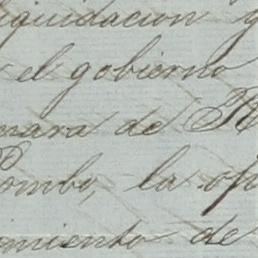 iquidacion
el gobierno
mara de R
Pombo, la op
amiento de